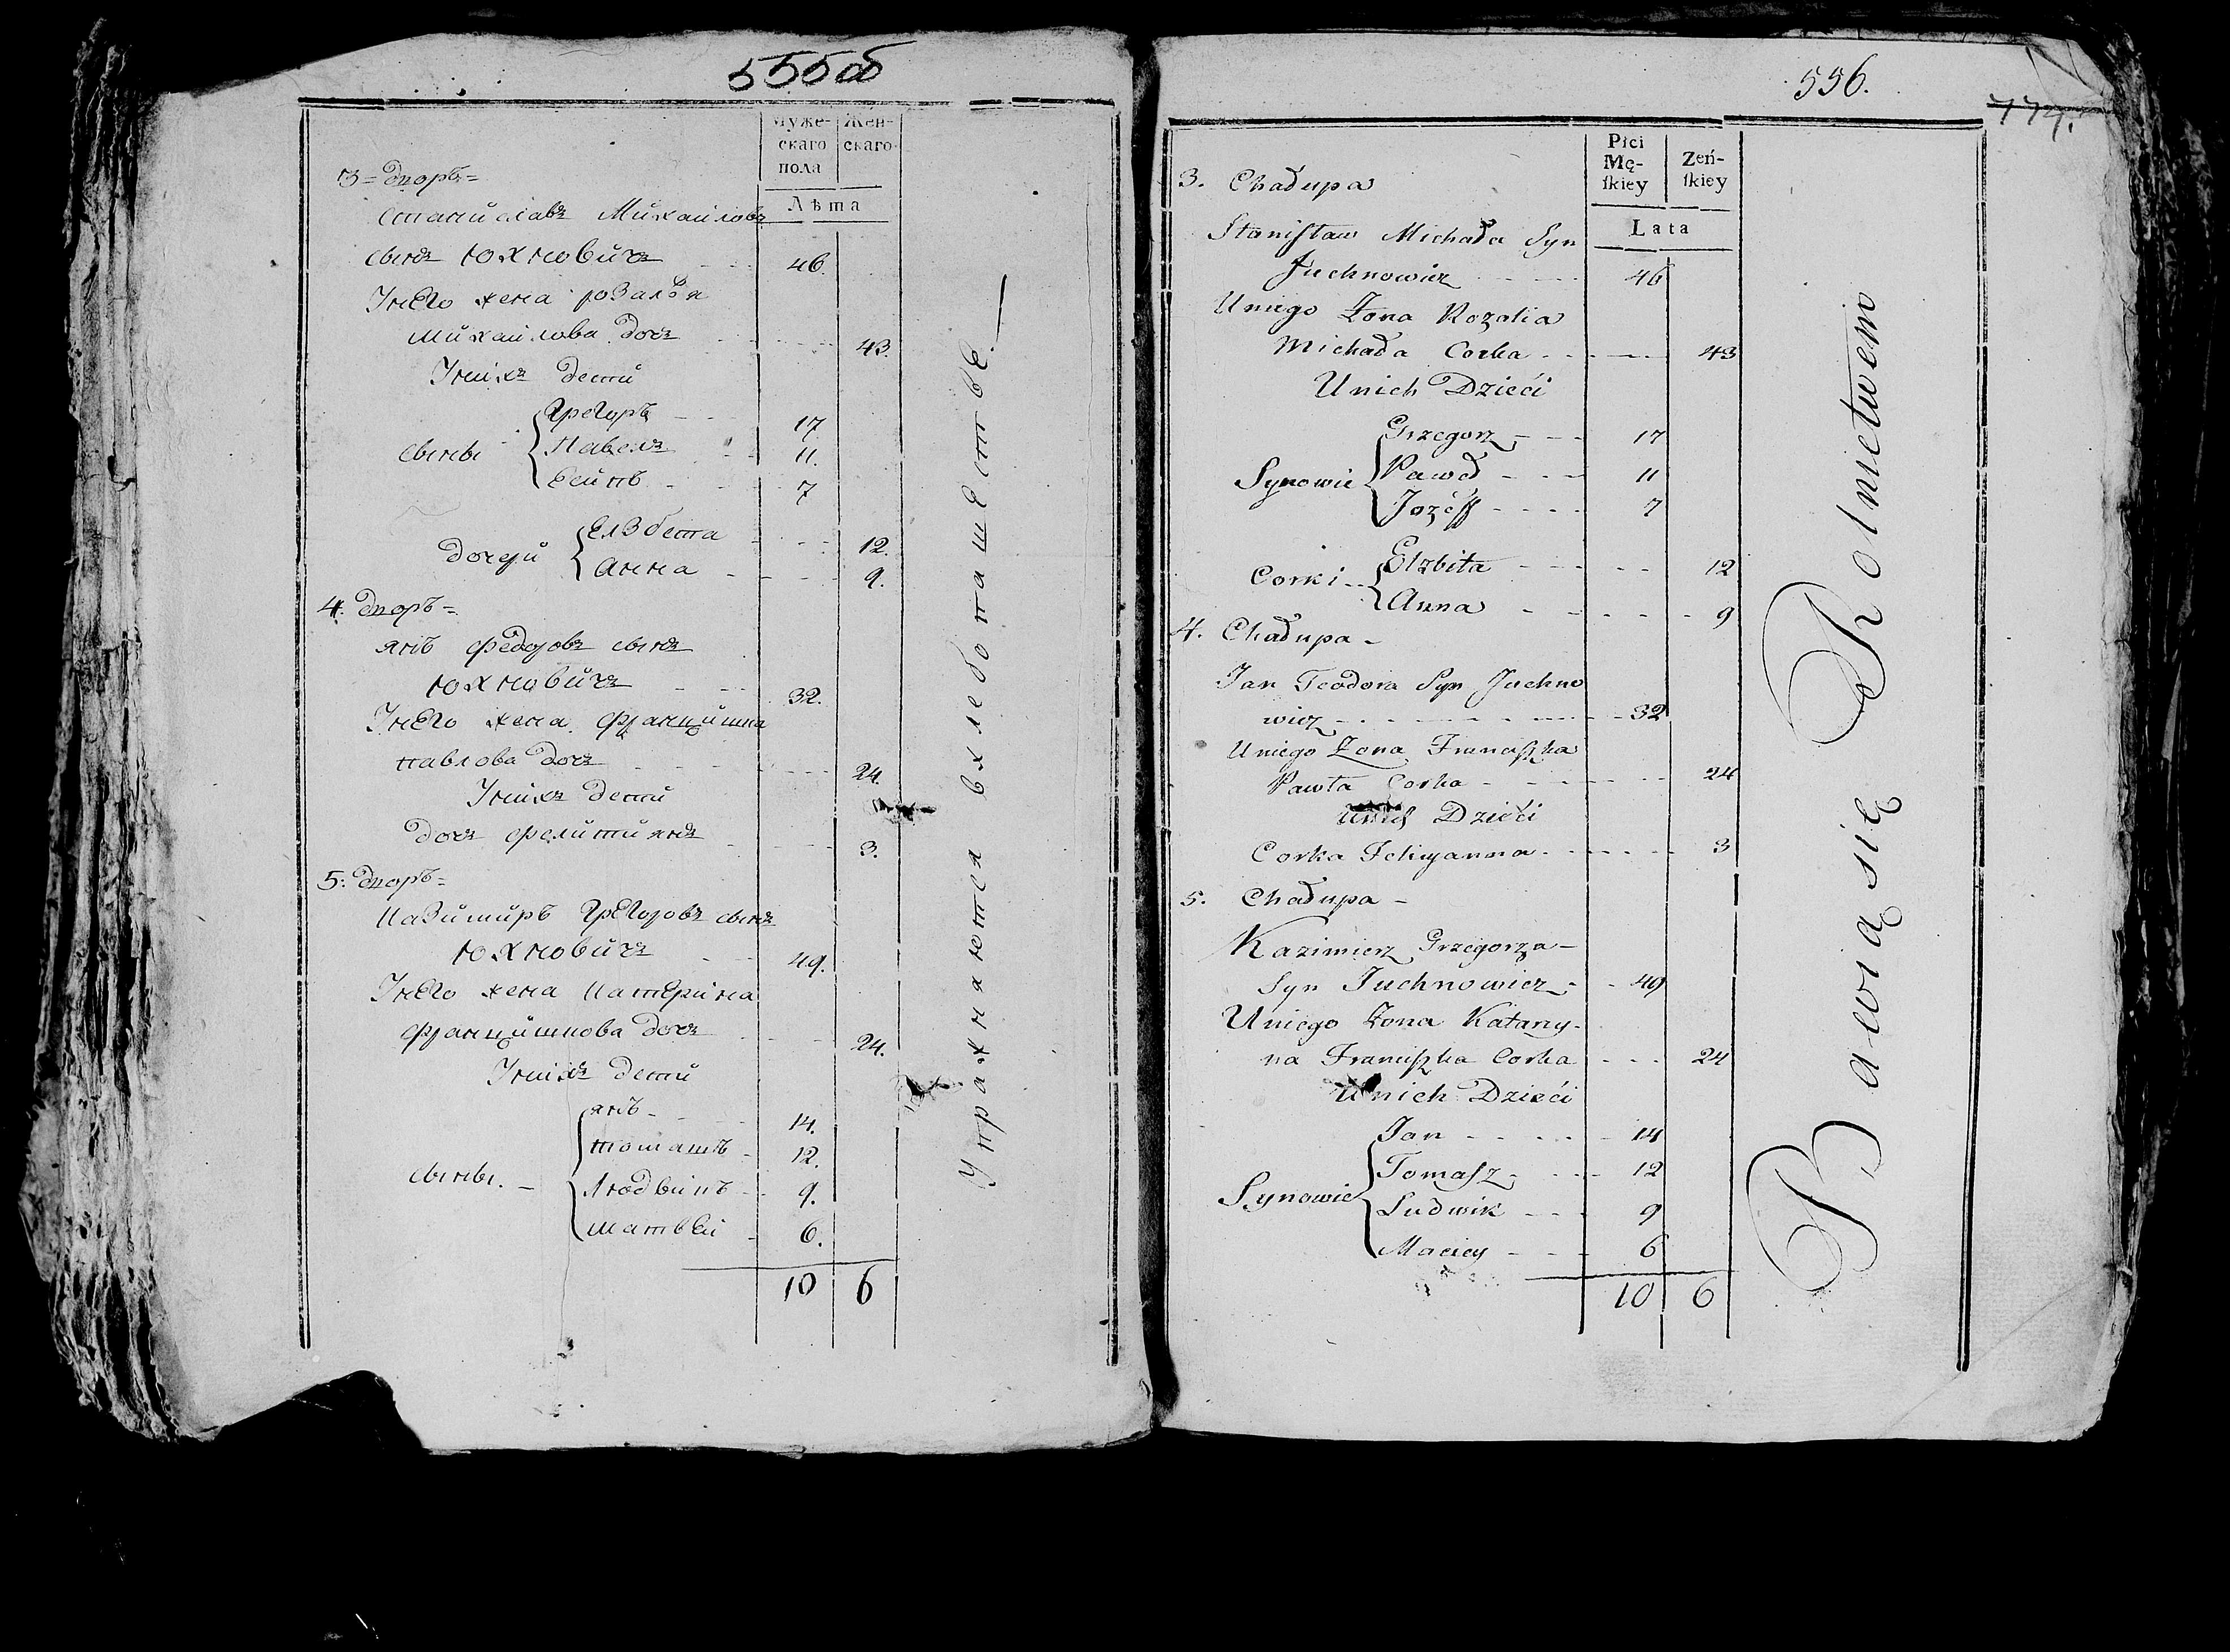 555об
Муже-
скаго
пола
Жен-
скаго
Лѣта
3 = Дворъ =
Станиславъ Михайловъ
сынъ Юхновичъ - - 46.
У него жена розалія
Михайлова дочъ - - - 43.
У нихъ дети
сыны
Грегоръ - - 17.
Павелъ - - 11.
Есипъ - - 7
дочери
Елзбета - - - 12.
Анна - - - 9.
4. Дворъ =
янъ федоровъ сынъ
Юхновичъ - - 32.
У него жена францишка
павлова дочъ - - - 24.
У нихъ дети
дочъ - - - 3.
5: Дворъ =
Казимиръ Грегоровъ сынъ
Юхновичъ - - 49.
У него жена Катерина
францишкова дочъ - - - 24.
У нихъ дети
сыны. -
янъ - - 14.
томашъ - 12.
Людвикъ - - 9.
матвей - 6.
10 6
Упражняются в хлебопашестве. —
556.
774.
Płci
Mę-
ſkiey
Zeń-
ſkiey
Lata
3. Chałupa
Staniſław Michała Syn
Juchnowicz - - - 46
Uniego Żona Rozalia
Michała Corka - - - 43
Unich Dzieći
Synowie
Grzegorz - - - 17
Paweł - - - 11
Jozéff - - - - 7
Corki - -
Elzbita - - - - 12
Anna - - - - - 9
4. Chałupa -
Jan Teodora Syn Juchno
wicz - - - - - - 32
Uniego Żona Franciszka
Pawła Corka - - - - 24
Unich Dzieći
Corka Felicyanna - - - - - 3
5. Chałupa -
Kazimierz Grzegorza -
Syn Juchnowicz - - 49
Uniego Żona Katarzy-
na Franciszka Corka - - - 24
Unich Dzieći
Synowie
Jan - - - - - 14
Tomaſz - - - - 12
Ludwik - - - 9
Maciey - - - 6
10 6
Bawią się Rolnictwem